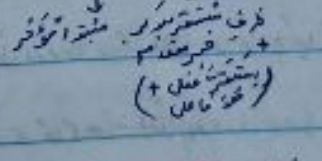 ظرف مستقر خبر مبتدا مؤخر
+ خبر مقدم
(يستقر فعل +
هو فاعل)